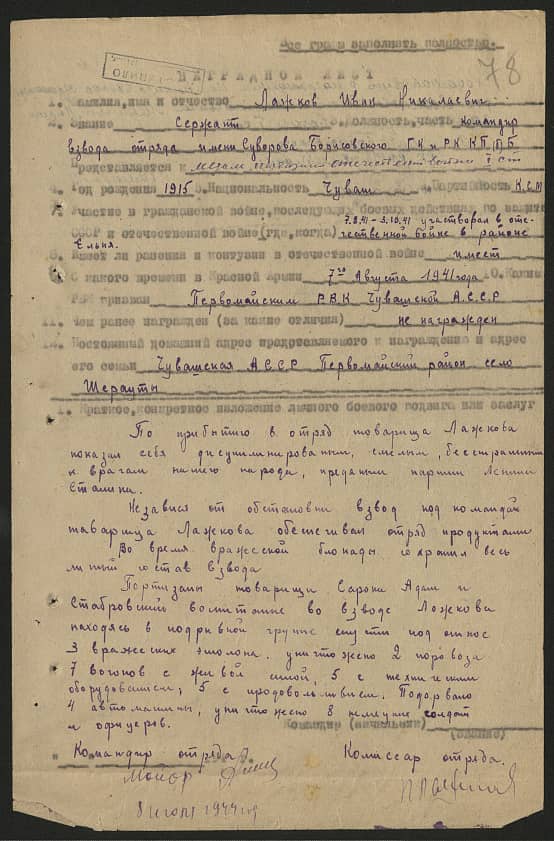 Все графы выполнять полностью.
78
НАГРАДНОЙ ЛИСТ
1. Фамилия, имя и отчество Лажков Иван Николаевич
2. Звание Сержант должность, часть командир
взвода отряда имени Суворова Борисовского ГК и РК КП/б/Б
Представляется к II ст
4. Год рождения 1915 5. Национальность Чуваш 6. Партийность К.С.М
7. Участие в гражданской войне, последующих боевых действиях по защите
СССР и отечественной войне (где, когда) 7.8.41 - 5.10.41 участвовал в оте-
чественной войне в районе
Ельня.
8. Имеет ли ранения и контузии в отечественной войне имеет
9. С какого времени в Красной Армии 7го Августа 1941 года 10. Каким
РВК призван Первомайским РВК Чувашской АССР
11. Чем ранее награжден (за какие отличия) не награжден
12. Постоянный домашний адрес представляемого к награждению и адрес
его семьи Чувашская АССР Первомайский район село
Шерауты
1. Краткое, конкретное изложение личного боевого подвига или заслуг
По прибытию в отряд товарища Лажкова
показал себя дисциплинированым, смелым, бесстрашным
к врагам нашего народа, преданым партии Ленина
Сталина.
Независя от обстановки взвод под командой
таварища Лажкова обеспечивал отряд продуктами
Во время вражеской блокады сохранил весь
личный состав взвода
Партизаны товарищи Сарока Адам и
Стабровский воспитание во взводе Лажкова
находясь в подрывной группе спустили под откос
3 вражеских эшолона. уничтожено 2 поровоза
7 вогонов с живой силой, 5 с техническим
оборудованием, 5 с продовольствием. Подорвано
4 автомашины, уничтожено 8 немецких солдат
и офицеров.
Командир (начальник)
(звание)
Командир отряда
Комиссар отряда.
Майор
8 1944 год